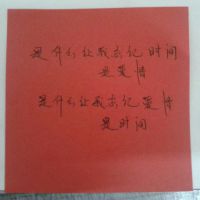 是什么让我忘记时间
是爱情
是什么让我忘记爱情
是时间